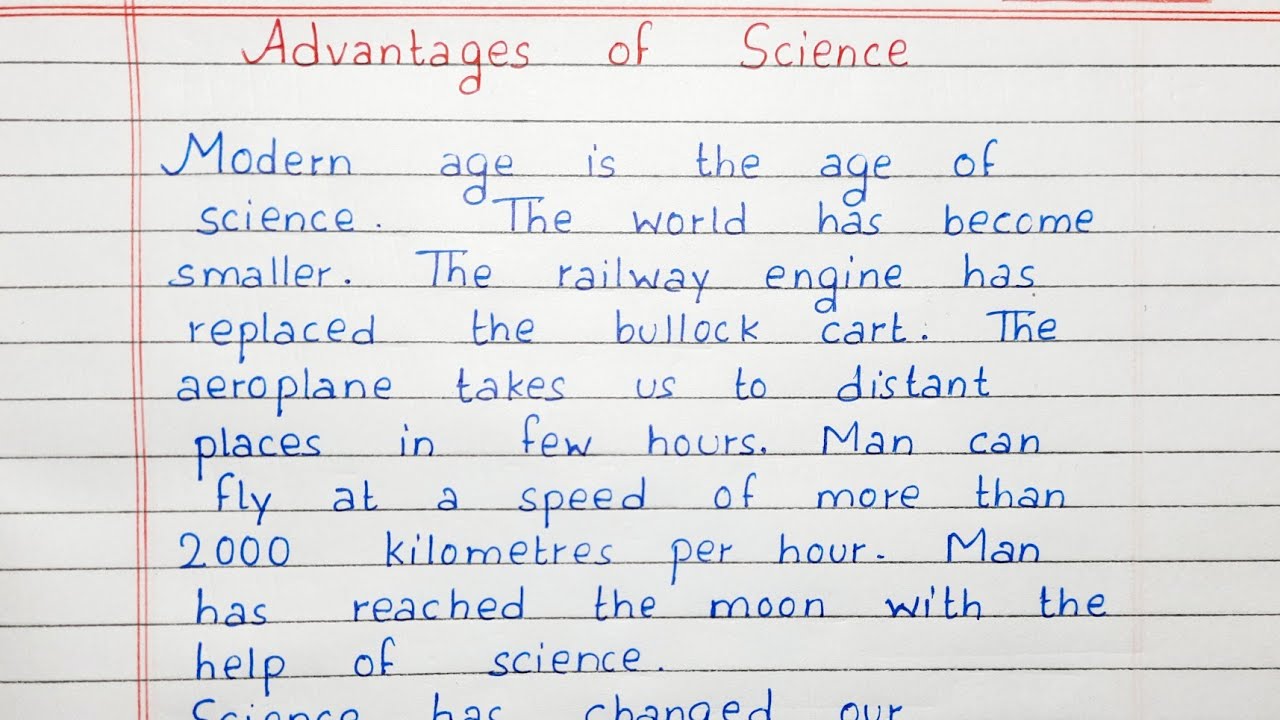 Advantages of Science
Modern age is the age of
science. The world has become
smaller. The railway engine has
replaced the bullock cart. The
aeroplane takes us to distant
places in few hours. Man can
fly at a speed of more than
2000 kilometres per hour. Man
has reached the moon with the
help of science.
Science has changed our